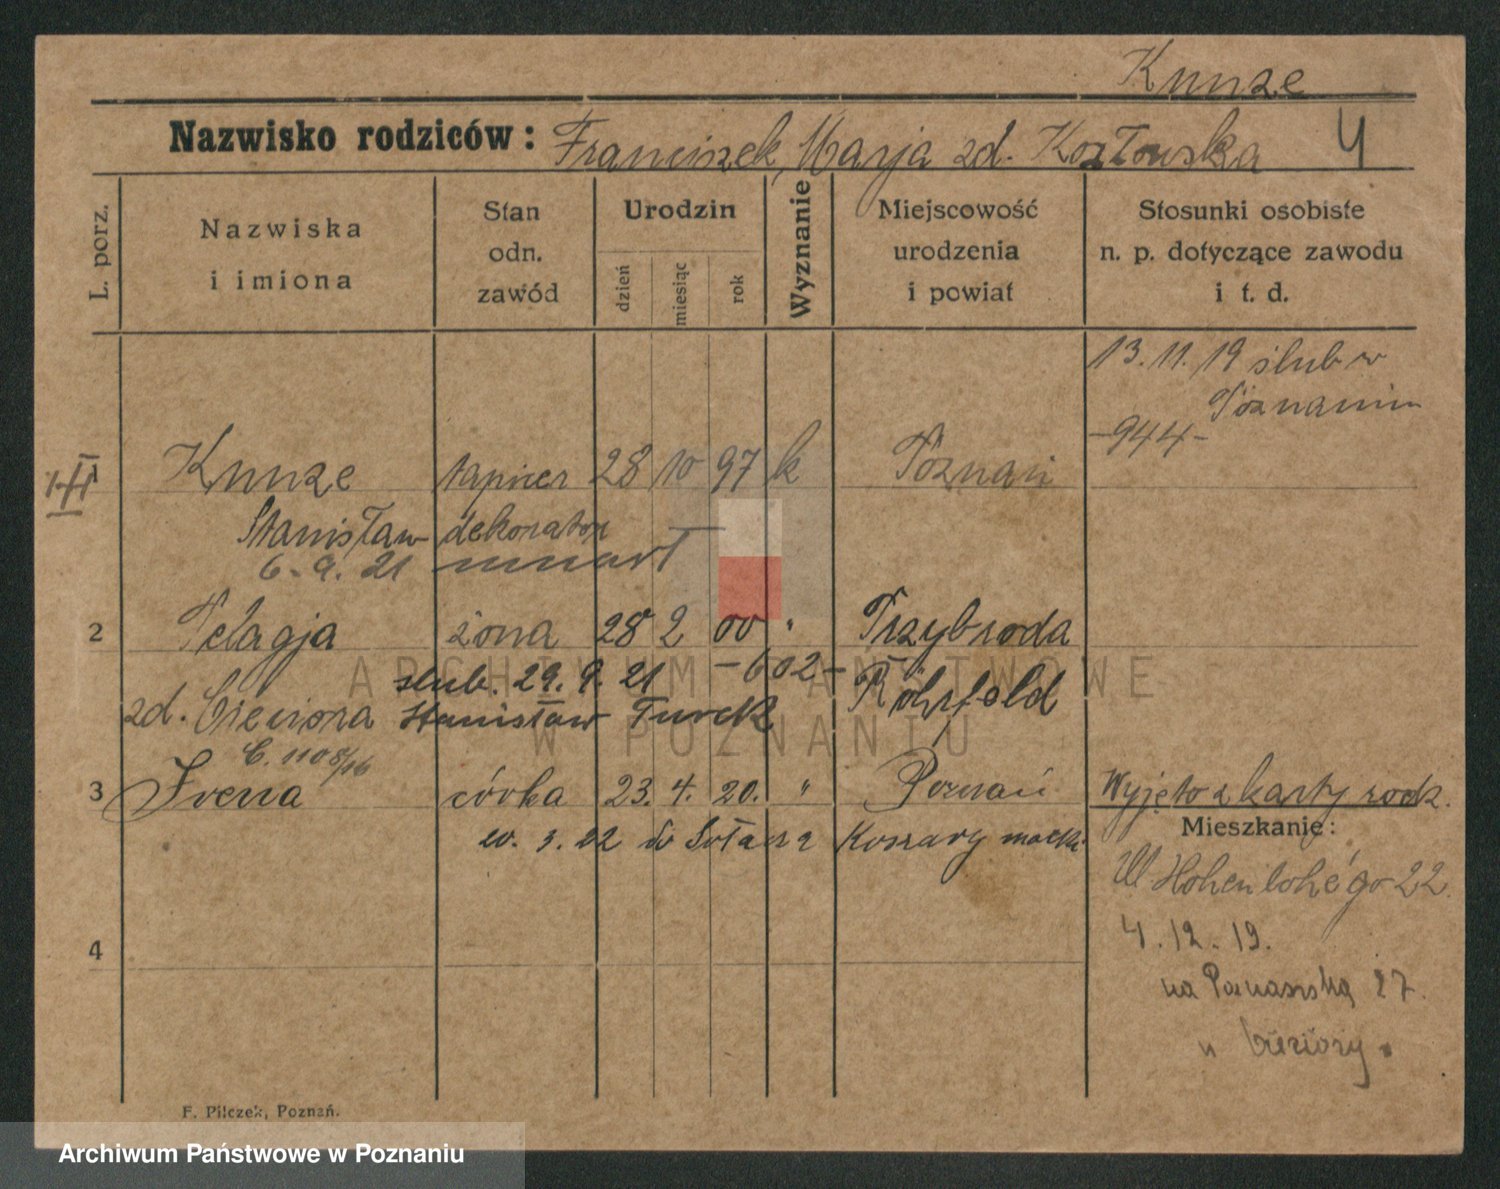 Kunze
Nazwisko rodziców: Franciszek, Marja zd. Kozłowska 4
L. porz.
Nazwiska i imiona
Stan odn. zawód
Urodzin
dzień
miesiąc
rok
Wyznanie
Miejscowość urodzenia i powiat
Stosunki osobiste n. p. dotyczące zawodu i t. d.
13. 11. 19 ślub w
Poznaniu
-944-
Kunze tapicer 28 10 97 k Poznań
Stanisław dekorator
6. 9. 21 umarł
2 Pelagja żona 28 2 00 " Przybroda
-602-
ślub. 29. 9. 21 Röhrfeld
zd. Cieciora Stanisław Turek
C. 1108/16
3 Irena córka 23. 4. 20. " Poznań Wyjęto z karty rodz.
20. 3. 22 do Sołacza Koszary
Mieszkanie:
Ul. Hohenlohégo 22
4
4. 12. 19.
na 27.
u
F. Pilczek, Poznań.
ARCHIWUM PAŃSTWOWE
W POZNANIU
Archiwum Państwowe w Poznaniu